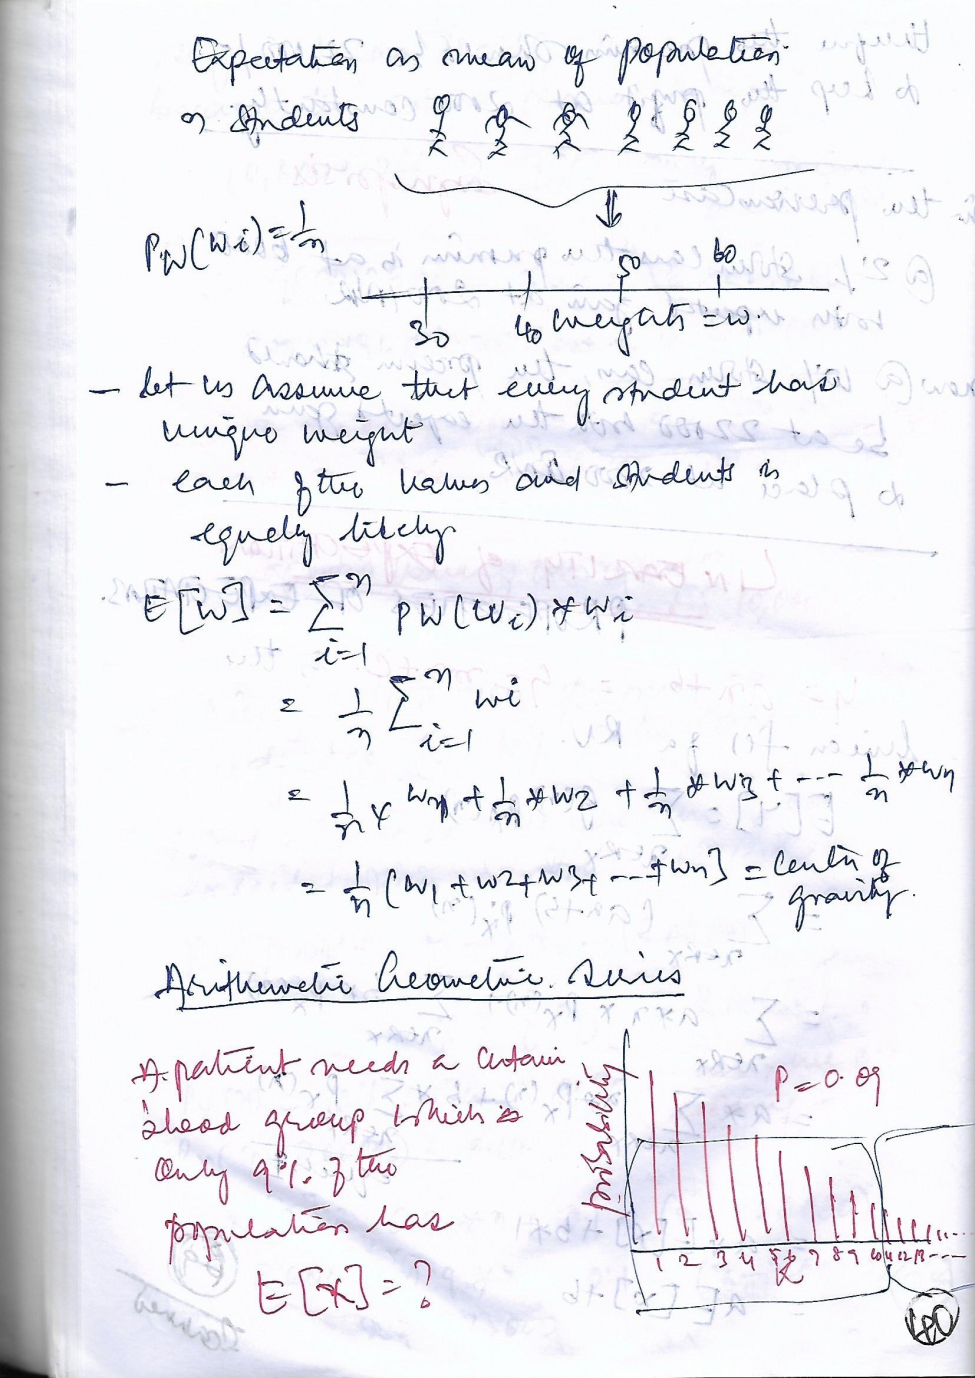 Expectation as mean of population
n students
PW(wi) = 1/n
50 60
30 40 weights = w.
- Let us assume that every student has
unique weight
- each of the values and students is
equally likely
E[W] = Σ i=1 n PW(wi) * wi
= 1/n Σ i=1 n wi
= 1/n × w1 + 1/n * w2 + 1/n * w3 + --- 1/n * wn
= 1/n (w1 + w2 + w3 + --- + wn] = Centre of
gravity.
Arithmetic Geometric Series
A patient needs a certain
blood group which is
only 9% of the
population has
E[X] = ?
P = 0.09
probability
1 2 3 4 5 6 7 8 9 10 11 12 13 ----
X
480